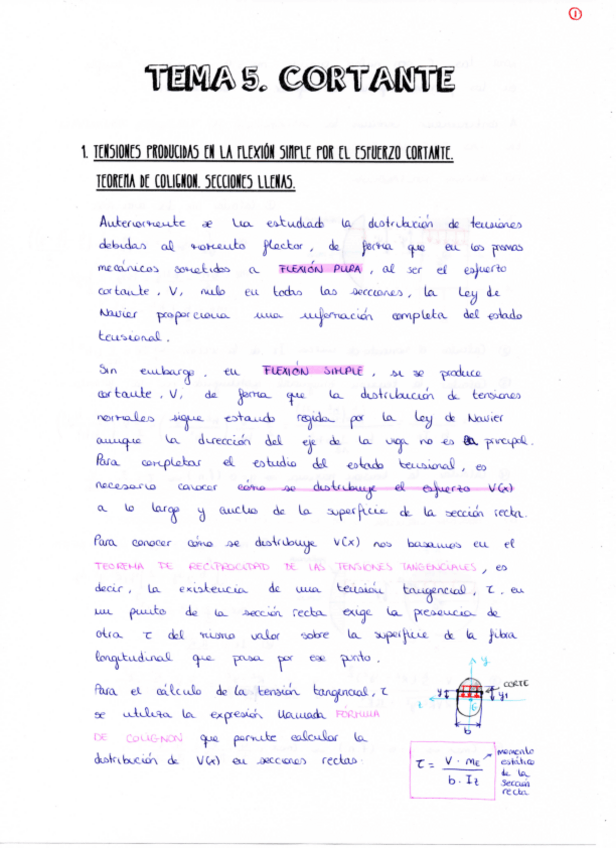 1
TEMA 5. CORTANTE
1. TENSIONES PRODUCIDAS EN LA FLEXIÓN SIMPLE POR EL ESFUERZO CORTANTE.
TEOREMA DE COLIGNON. SECCIONES LLENAS.
Anteriormente se ha estudiado la distribución de tensiones
debidas al momento flector, de forma que en los prismas
mecánicos sometidos a FLEXIÓN PURA, al ser el esfuerzo
cortante, V, nulo en todas las secciones, la Ley de
Navier proporciona una información completa del estado
tensional.
Sin embargo, en FLEXIÓN SIMPLE, si se produce
cortante, V, de forma que la distribución de tensiones
normales sigue estando regida por la Ley de Navier
aunque la dirección del eje de la viga no es principal.
Para completar el estudio del estado tensional, es
necesario conocer cómo se distribuye el esfuerzo V(x)
a lo largo y ancho de la superficie de la sección recta.
Para conocer cómo se distribuye V(x) nos basamos en el
TEOREMA DE RECIPROCIDAD DE LAS TENSIONES TANGENCIALES, es
decir, la existencia de una tensión tangencial, τ, en
un punto de la sección recta exige la presencia de
otra τ del mismo valor sobre la superficie de la fibra
longitudinal que pasa por ese punto.
Para el cálculo de la tensión tangencial, τ
se utiliza la expresión llamada FÓRMULA
DE COLIGNON que permite calcular la
distribución de V(x) en secciones rectas.
y
CORTE
y
y1
z
G
b
τ = V · mE / b · Iz
momento
estático
de la
sección
recta